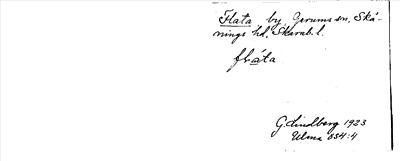 Flata by, Gerums sn, Skå-
nings hd, Skarab. l.
flåta
G. Lindberg 1923
Ulma 554:4